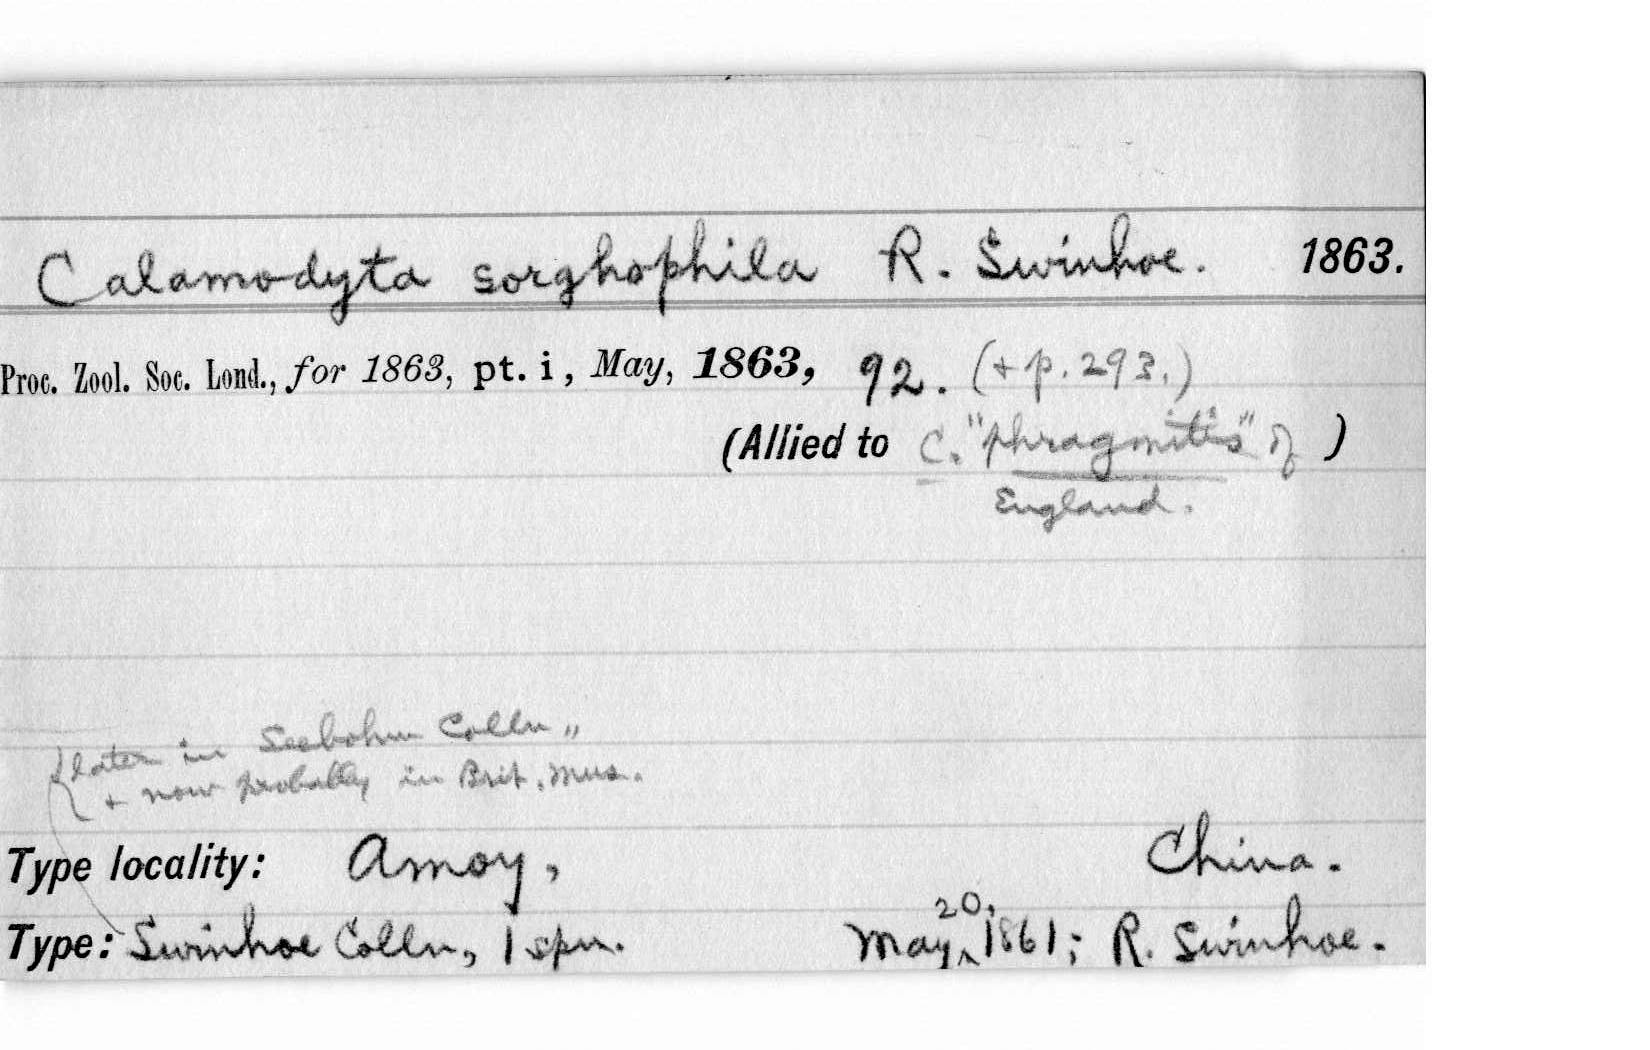 Calamodyta sorghophila R. Swinhoe. 1863.
Proc. Zool. Soc. Lond., for 1863, pt. i, May, 1863, 92. (+ p. 293.)
(Allied to C. "phragmitis" of )
England.
later in Seebohm Colln.,
+ now probably in Brit. Mus.
Type locality: Amoy, China.
20,
Type: Swinhoe Colln, 1 spn. May ‸ 1861; R. Swinhoe.